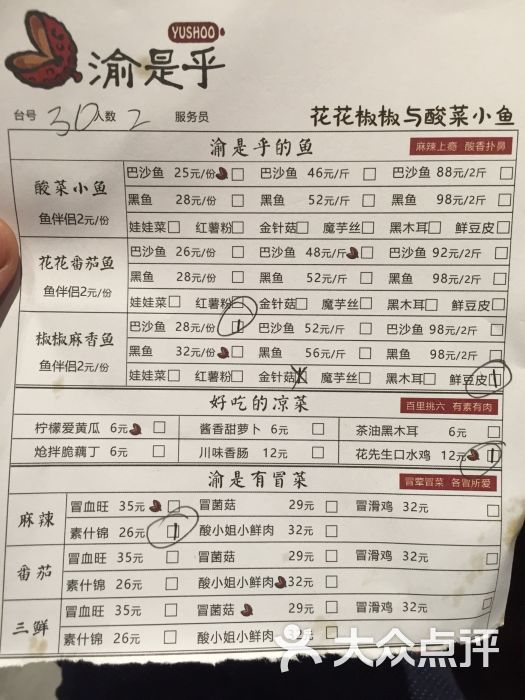 YUSHOO
渝是乎
台号 30 人数 2 服务员
花花椒椒与酸菜小鱼
渝是乎的鱼 麻辣上瘾 酸香扑鼻
酸菜小鱼
鱼伴侣2元/份
巴沙鱼 25元/份 巴沙鱼 46元/斤 巴沙鱼 88元/2斤
黑鱼 28元/份 黑鱼 52元/斤 黑鱼 98元/2斤
娃娃菜 红薯粉 金针菇 魔芋丝 黑木耳 鲜豆皮
花花番茄鱼
鱼伴侣2元/份
巴沙鱼 26元/份 巴沙鱼 48元/斤 巴沙鱼 92元/2斤
黑鱼 28元/份 黑鱼 52元/斤 黑鱼 98元/2斤
娃娃菜 红薯粉 金针菇 魔芋丝 黑木耳 鲜豆皮
椒椒麻香鱼
鱼伴侣2元/份
巴沙鱼 28元/份 巴沙鱼 52元/斤 巴沙鱼 98元/2斤
黑鱼 32元/份 黑鱼 56元/斤 黑鱼 98元/2斤
娃娃菜 红薯粉 金针菇 魔芋丝 黑木耳 鲜豆皮
好吃的凉菜 百里挑六 有素有肉
柠檬爱黄瓜 6元 酱香甜萝卜 6元 茶油黑木耳 6元
炝拌脆藕丁 6元 川味香肠 12元 花先生口水鸡 12元
渝是有冒菜 冒荤冒菜 各冒所爱
麻辣
冒血旺 35元 冒菌菇 29元 冒滑鸡 32元
素什锦 26元 酸小姐小鲜肉 32元
番茄
冒血旺 35元 冒菌菇 29元 冒滑鸡 32元
素什锦 26元 酸小姐小鲜肉 32元
三鲜
冒血旺 35元 冒菌菇 29元 冒滑鸡 32元
素什锦 26元 酸小姐小鲜肉 32元
大众点评